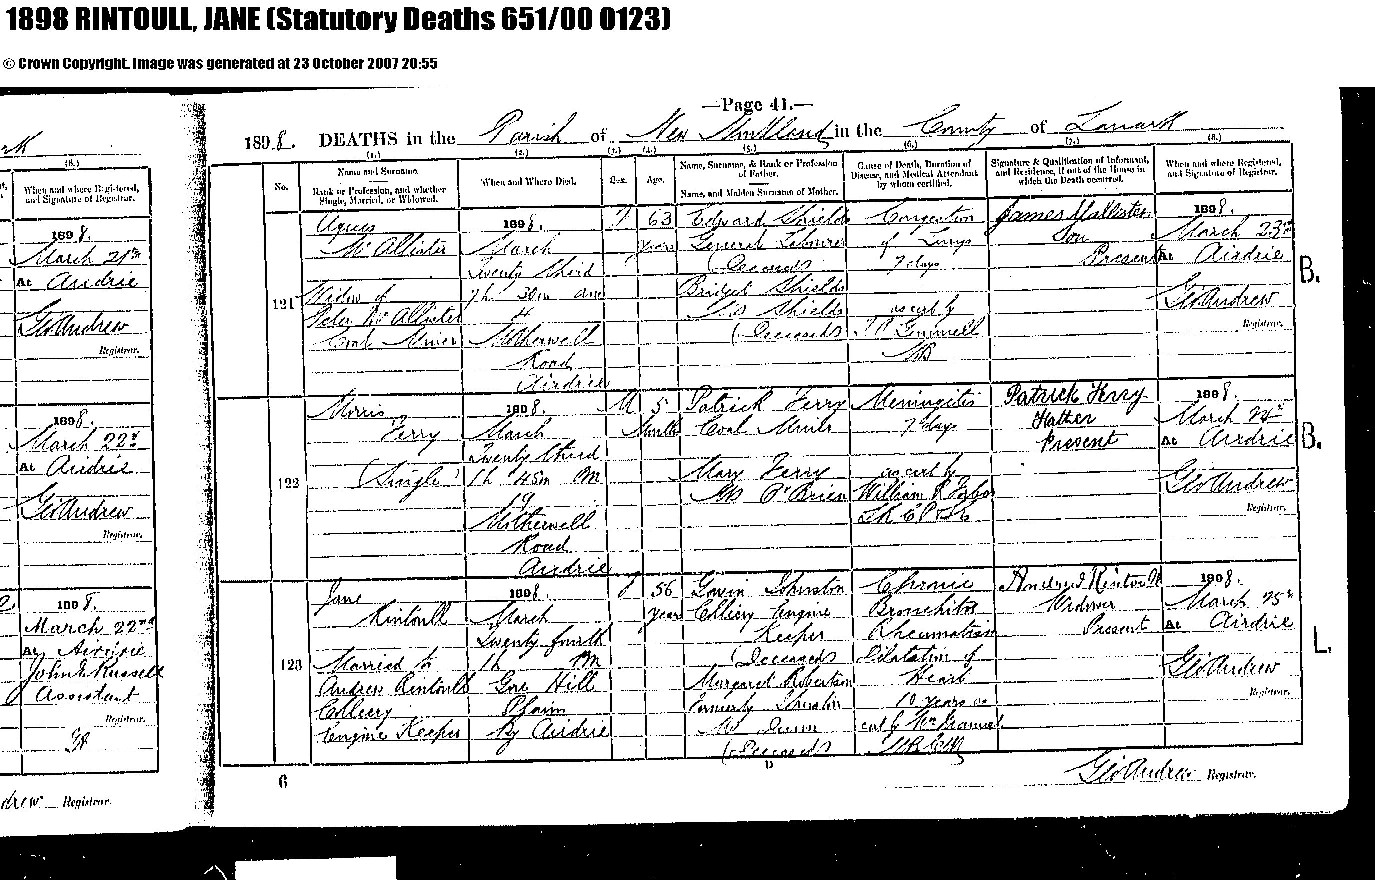 1898 RINTOULL, JANE (Statutory Deaths 651/00 0123)
© Crown Copyright. Image was generated at 23 October 2007 20:55
—Page 41.—
1898. DEATHS in the Parish of New Monkland in the County of Lanark
(1.) (2.) (3.) (4.) (5.) (6.) (7.) (8.)
No.
Name and Surname.
Rank or Profession, and whether
Single, Married, or Widowed.
When and Where Died.
Sex.
Age.
Name, Surname, & Rank or Profession
of Father.
Name, and Maiden Surname of Mother.
Cause of Death, Duration of
Disease, and Medical Attendant
by whom certified.
Signature & Qualification of Informant,
and Residence, if out of the House in
which the Death occurred.
When and where Registered,
and Signature of Registrar.
121
Agnes
McAllister
Widow of
Peter McAllister
Coal Miner
1898.
March
Twenty third
7h 30m am
4
Motherwell
Road
Airdrie
F
63
years
Edward Shields
General Labourer
(Deceased)
Bridget Shields
M.S. Shields
(Deceased)
Congestion
of Lungs
7 days
as cert by
MB
James McAllister
Son
Present
1898.
March 23rd
At Airdrie
Geo Andrew
Registrar.
B.
122
Morris
Ferry
(Single)
1898.
March
Twenty third
1h 45m PM
19
Motherwell
Road
Airdrie
M
5
Months
Patrick Ferry
Coal Miner
Mary Ferry
MS O'Brien
Meningitis
7 days
as cert by
William R
Patrick Ferry
Father
Present
1898.
March 24th
At Airdrie
Geo Andrew
Registrar.
B.
123
Jane
Rintoull
Married to
Andrew Rintoull
Colliery
Engine Keeper
1898.
March
Twenty fourth
1h PM
Gore Hill
Plains
by Airdrie
F
56
years
Gavin Johnston
Colliery Engine
Keeper
(Deceased)
Margaret Robertson
formerly Johnston
MS
(Deceased)
Chronic
Bronchitis
Rheumatism
Dilatation of
Heart
10 years as
cert by
MB CM
Andrew Rintoull
Widower
Present
1898.
March 25th
At Airdrie
Geo Andrew
Registrar.
L.
6
D
Geo Andrew Registrar.
(8.)
When and where Registered,
and Signature of Registrar.
1898.
March 21st
At Airdrie
Geo Andrew
Registrar.
1898.
March 22d
At Airdrie
Geo Andrew
Registrar.
1898.
March 22nd
At Airdrie
John L Russell
Assistant
Registrar.
Registrar.